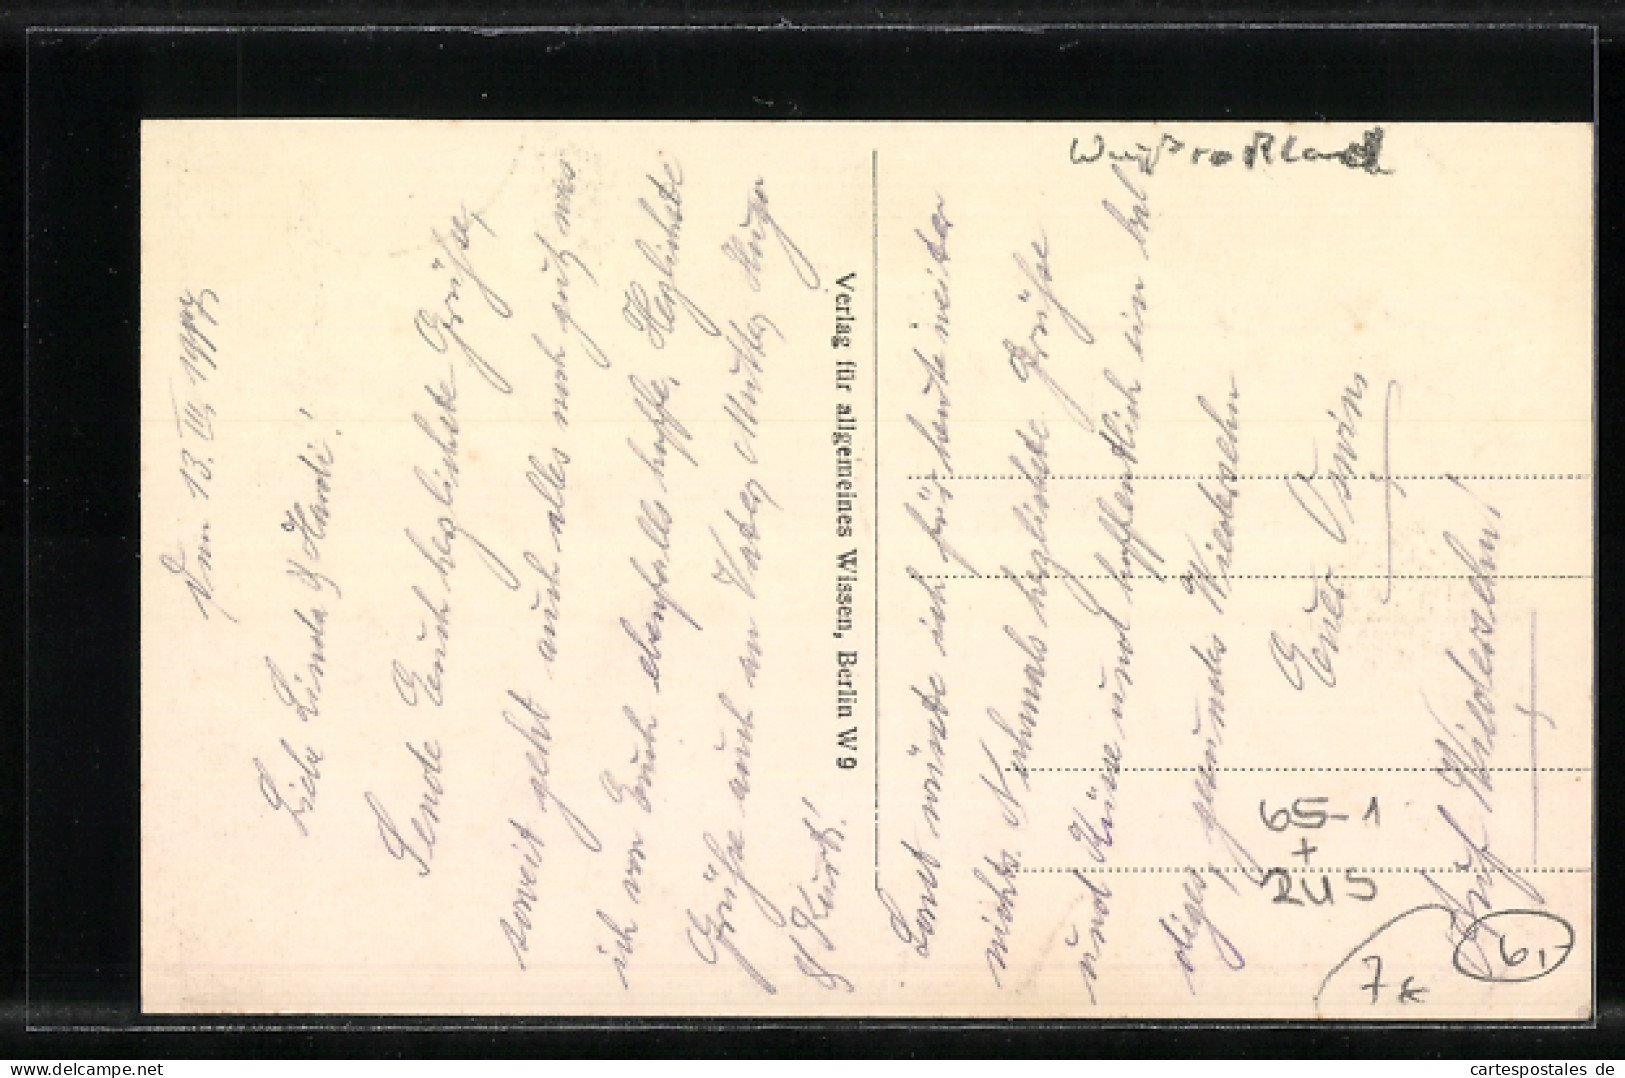 Den 13. III. 1917.
Liebe Linda & Handi!
Sende Euch herzlichste Grüsse,
soweit geht auch alles noch gut, was
ich von Euch ebenfalls hoffe, Herzlichste
Grüsse auch an Vater, Mutter, Hugo
& Kurt!
Verlag für allgemeines Wissen, Berlin W 9
Sonst wüste ich für heute weiter
nichts. Nochmals herzlichste Grüsse
und Küsse und hoffentlich ein bal
diges, gesundes Wiedersehn
Euer
Auf Wiedersehn!
65-1
+
245
7 x
6,-
cartespostales de